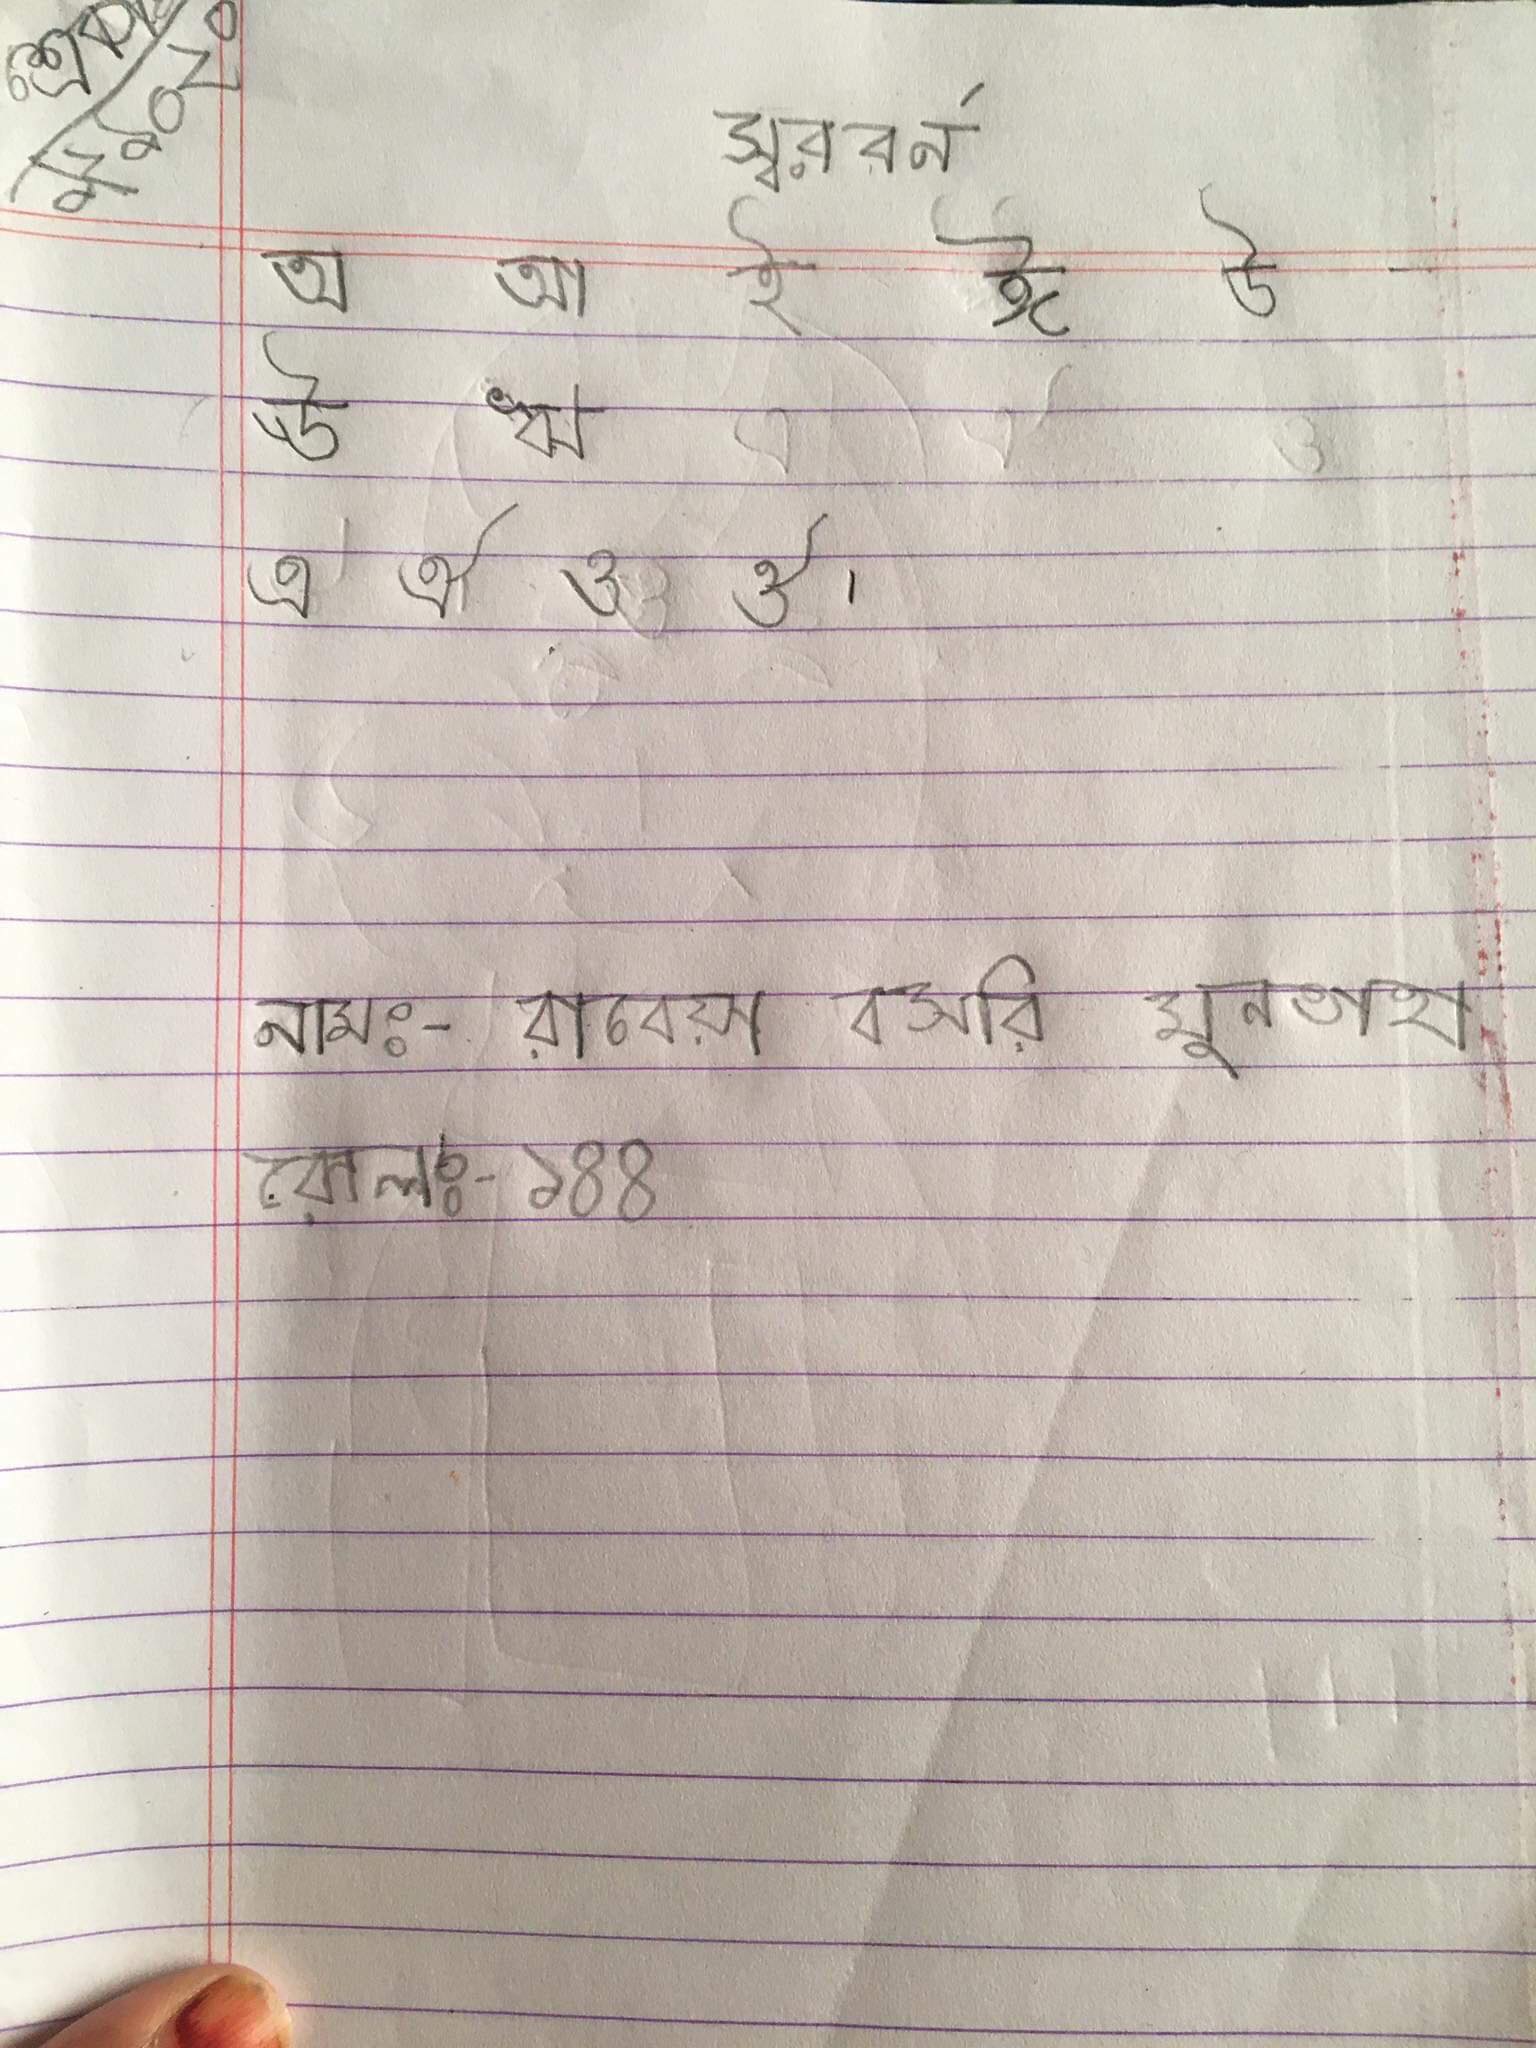 স্বরবর্ন
অ আ ই ঈ উ
ঊ ঋ
এ ঐ ও ঔ ।
নামঃ- রাবেয়া বসরি মুনতাহা
রোলঃ- ১৪৪